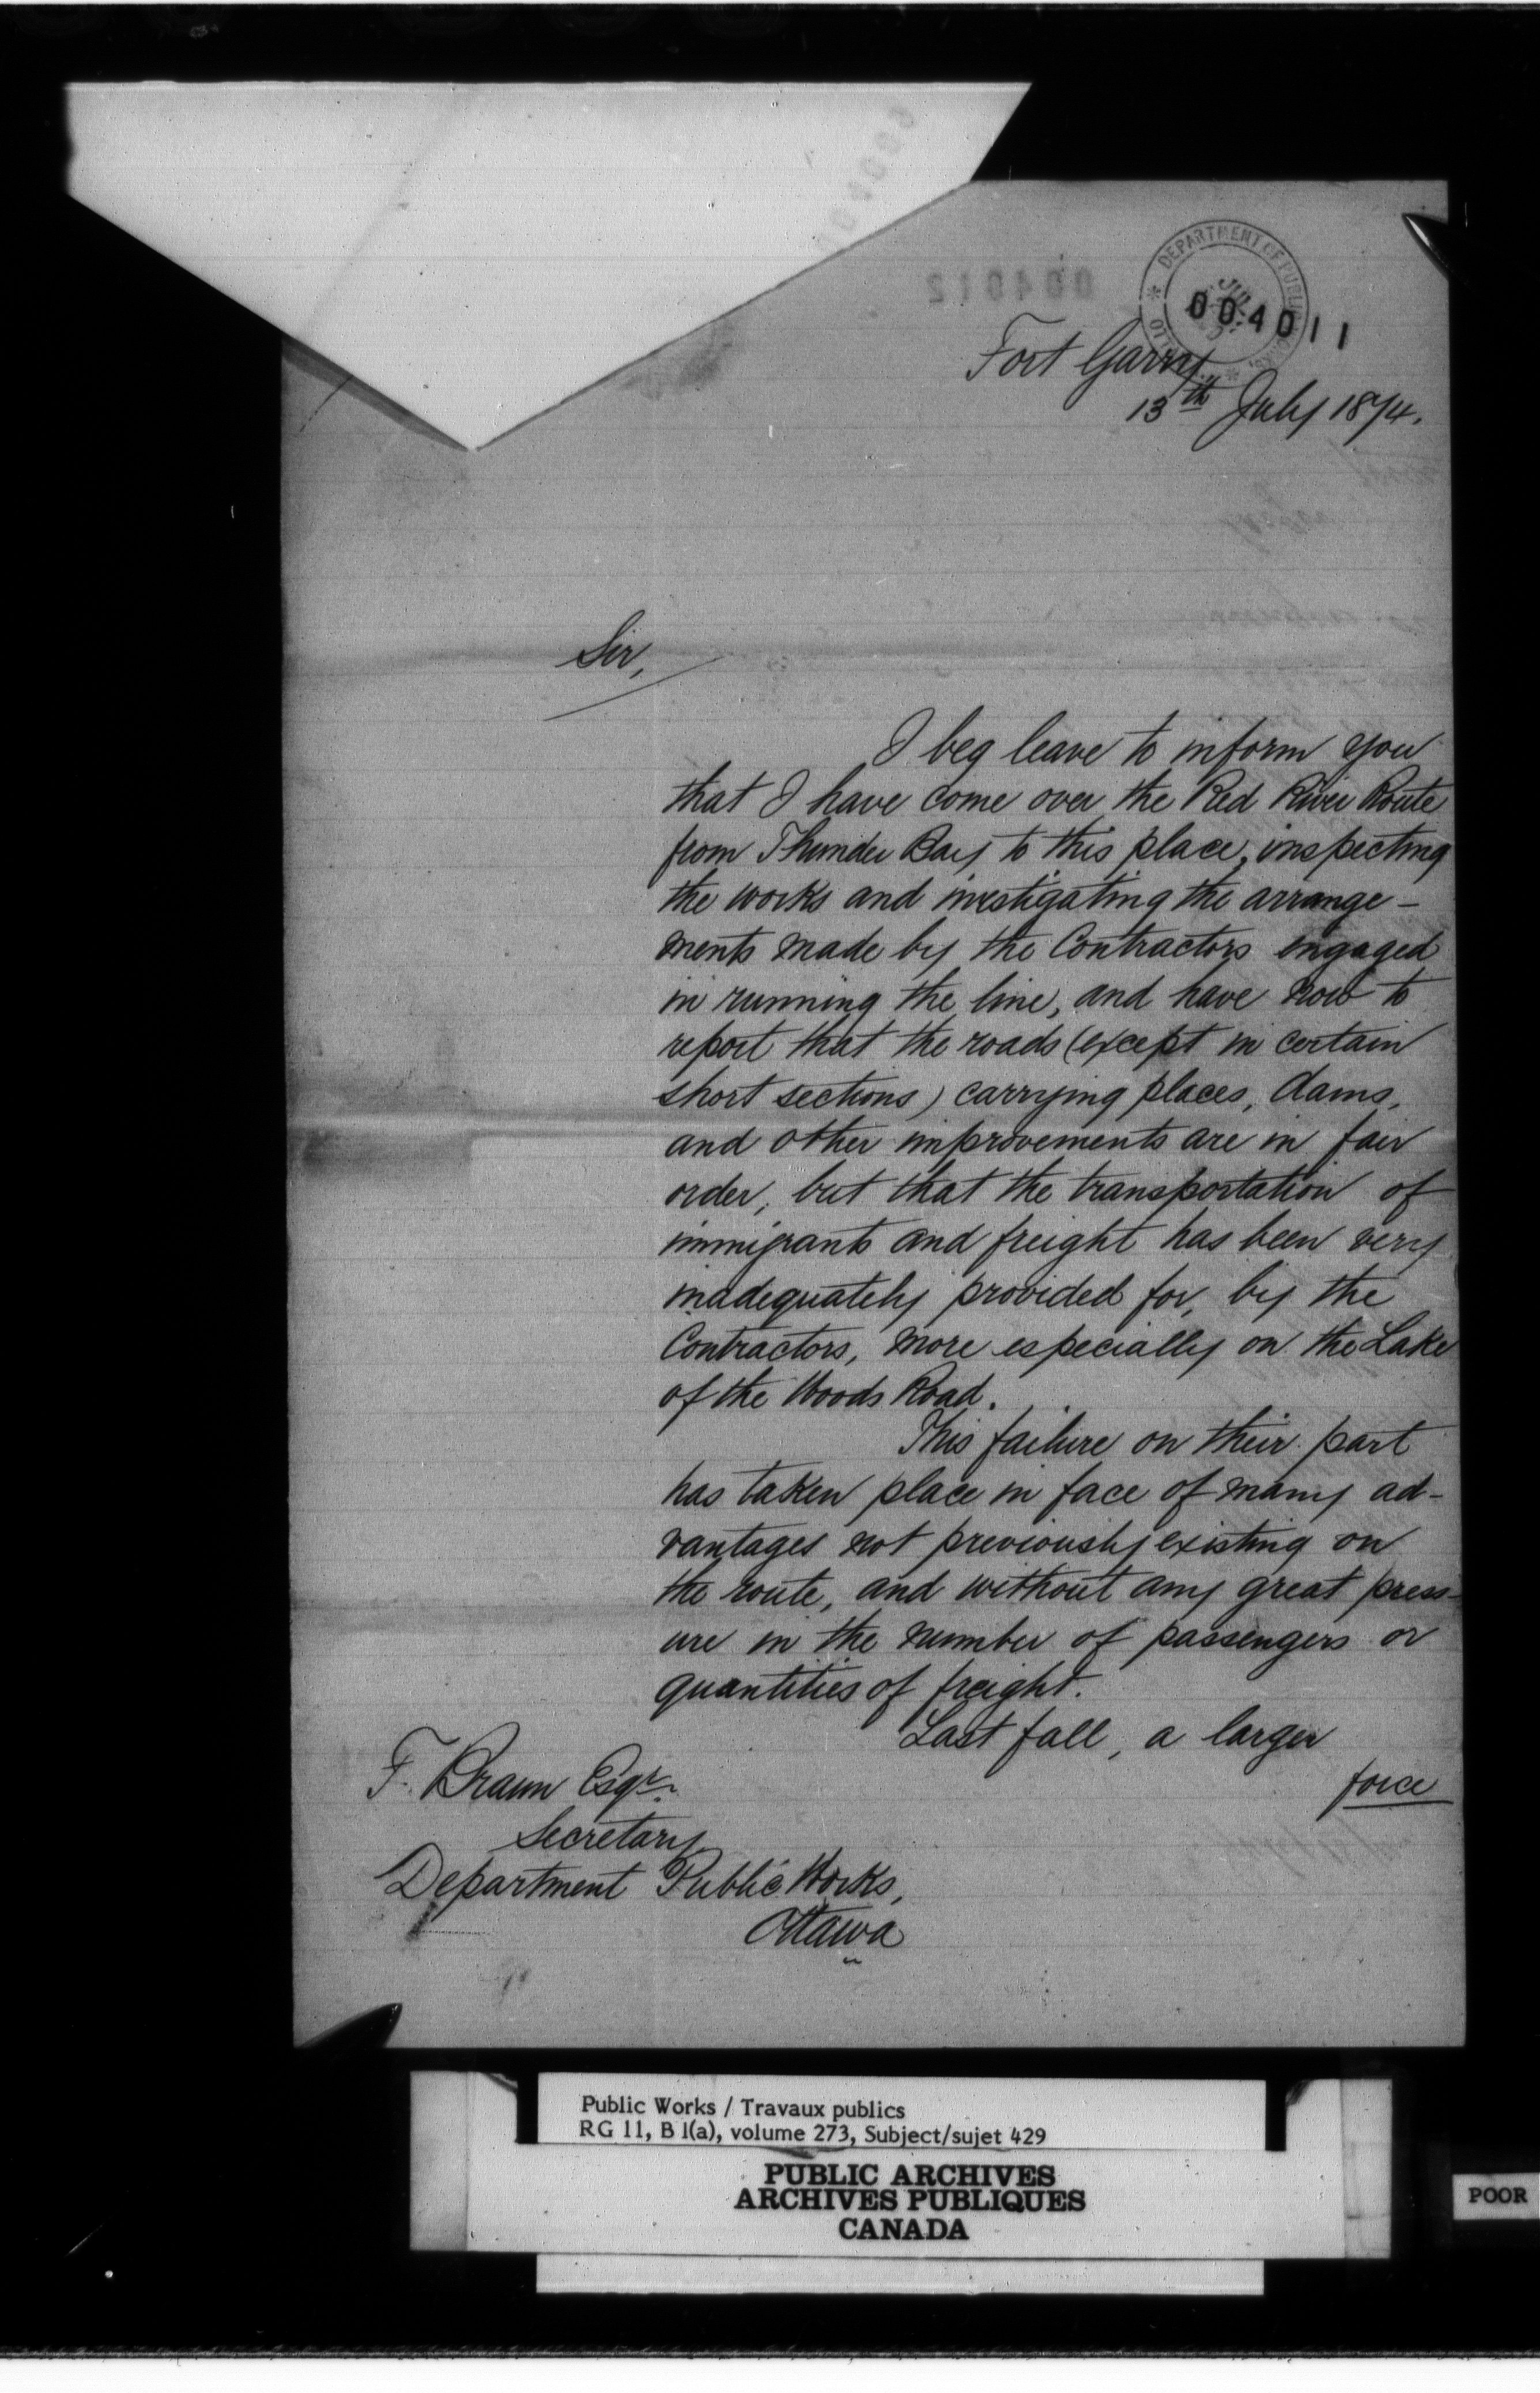 DEPARTMENT OF PUBLIC WORKS
004012
004011
Fort Garry
13th July 1874.
Sir,
I beg leave to inform you
that I have come over the Red River Route
from Thunder Bay to this place, inspecting
the works and investigating the arrange-
ments made by the Contractors engaged
in running the line, and have now to
report that the roads (except in certain
short sections) carrying places, dams,
and other improvements are in fair
order, but that the transportation of
immigrants and freight has been very
inadequately provided for, by the
Contractors, more especially on the Lake
of the Woods Road.
This failure on their part
has taken place in face of many ad-
vantages not previously existing on
the route, and without any great press-
ure in the number of passengers or
quantities of freight.
Last fall, a larger
force
F. Braun Esqr.
Secretary
Department Public Works,
Ottawa
Public Works / Travaux publics
RG 11, B 1(a), volume 273, Subject/sujet 429
PUBLIC ARCHIVES
ARCHIVES PUBLIQUES
CANADA
POOR